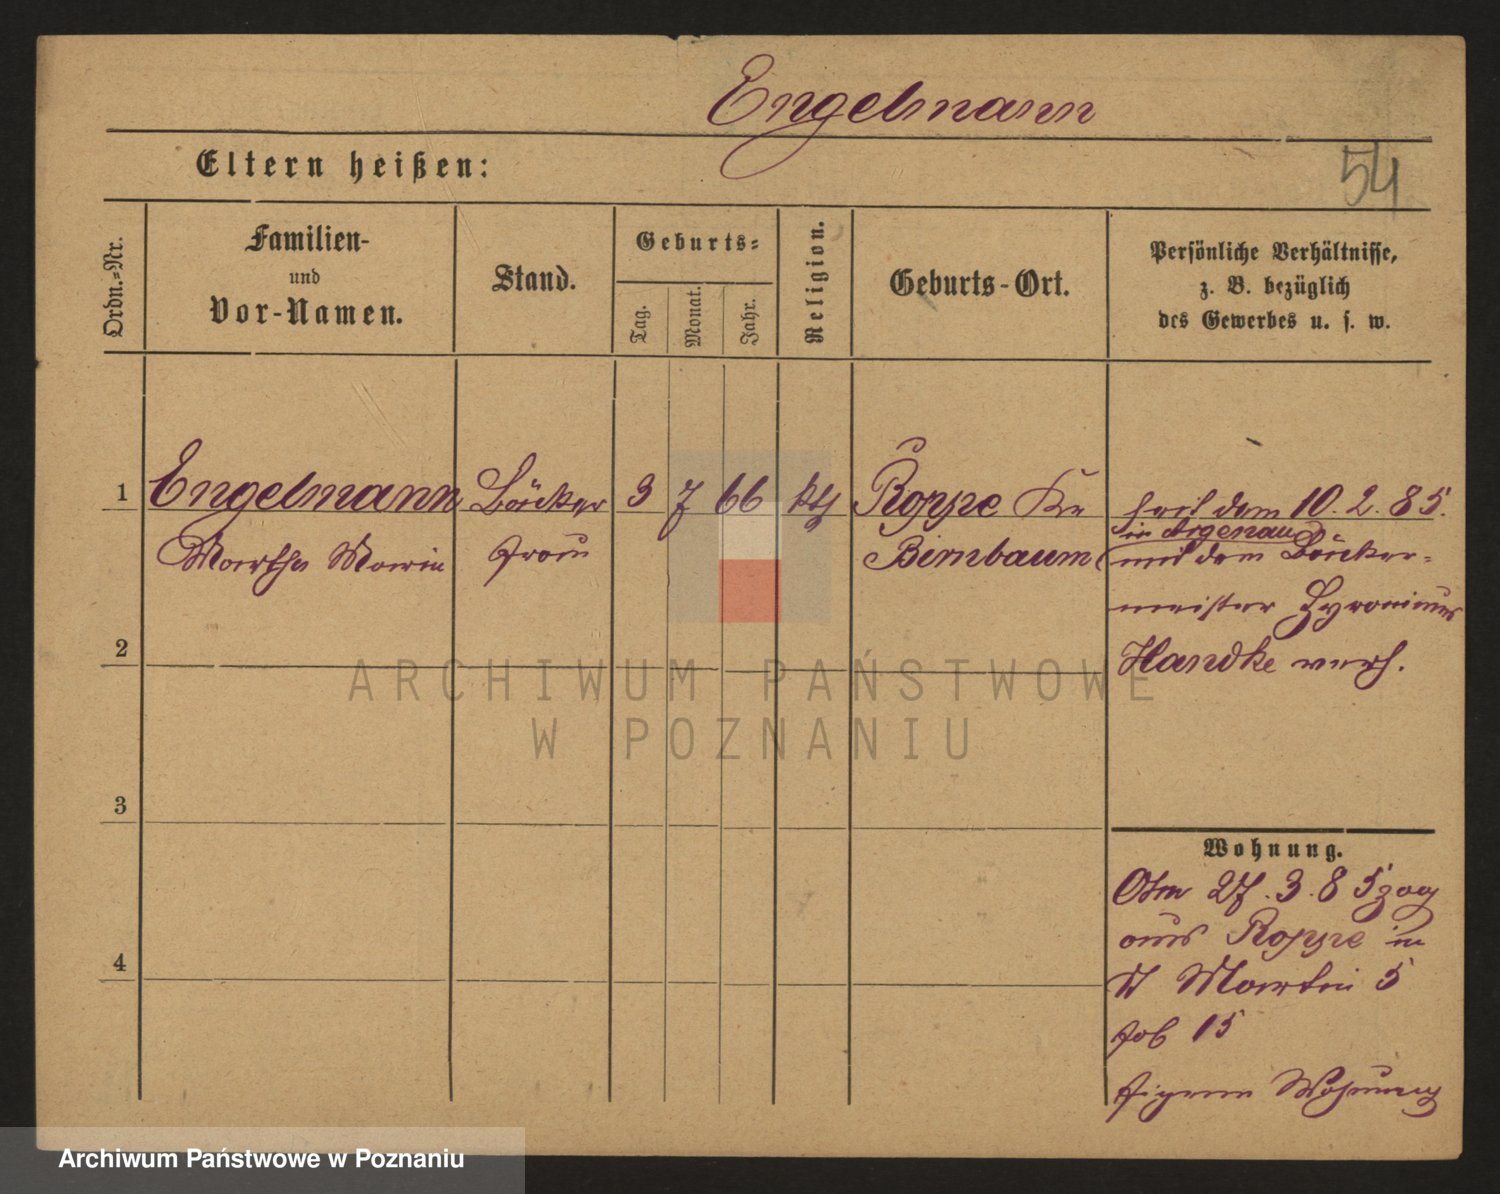 Engelmann
Eltern heißen:
54
Ordn.=Nr.
Familien-
und
Vor-Namen.
Stand.
Geburts=
Tag.
Monat.
Jahr.
Religion.
Geburts-Ort.
Persönliche Verhältnisse,
z. B. bezüglich
des Gewerbes u. s. w.
1 Engelmann Bäcker 3 7 66 kth Roppe Kr seit dem 10.2.85.
in Argenau
Martha Maria frau Birnbaum mit dem Bäcker=
meister
2 Handke verh.
ARCHIWUM PAŃSTWOWE
W POZNANIU
3
Wohnung.
Am 27.3.85 zog
aus Roppe in
4 St Martin 5
Feb 15
eigene Wohnung
Archiwum Państwowe w Poznaniu